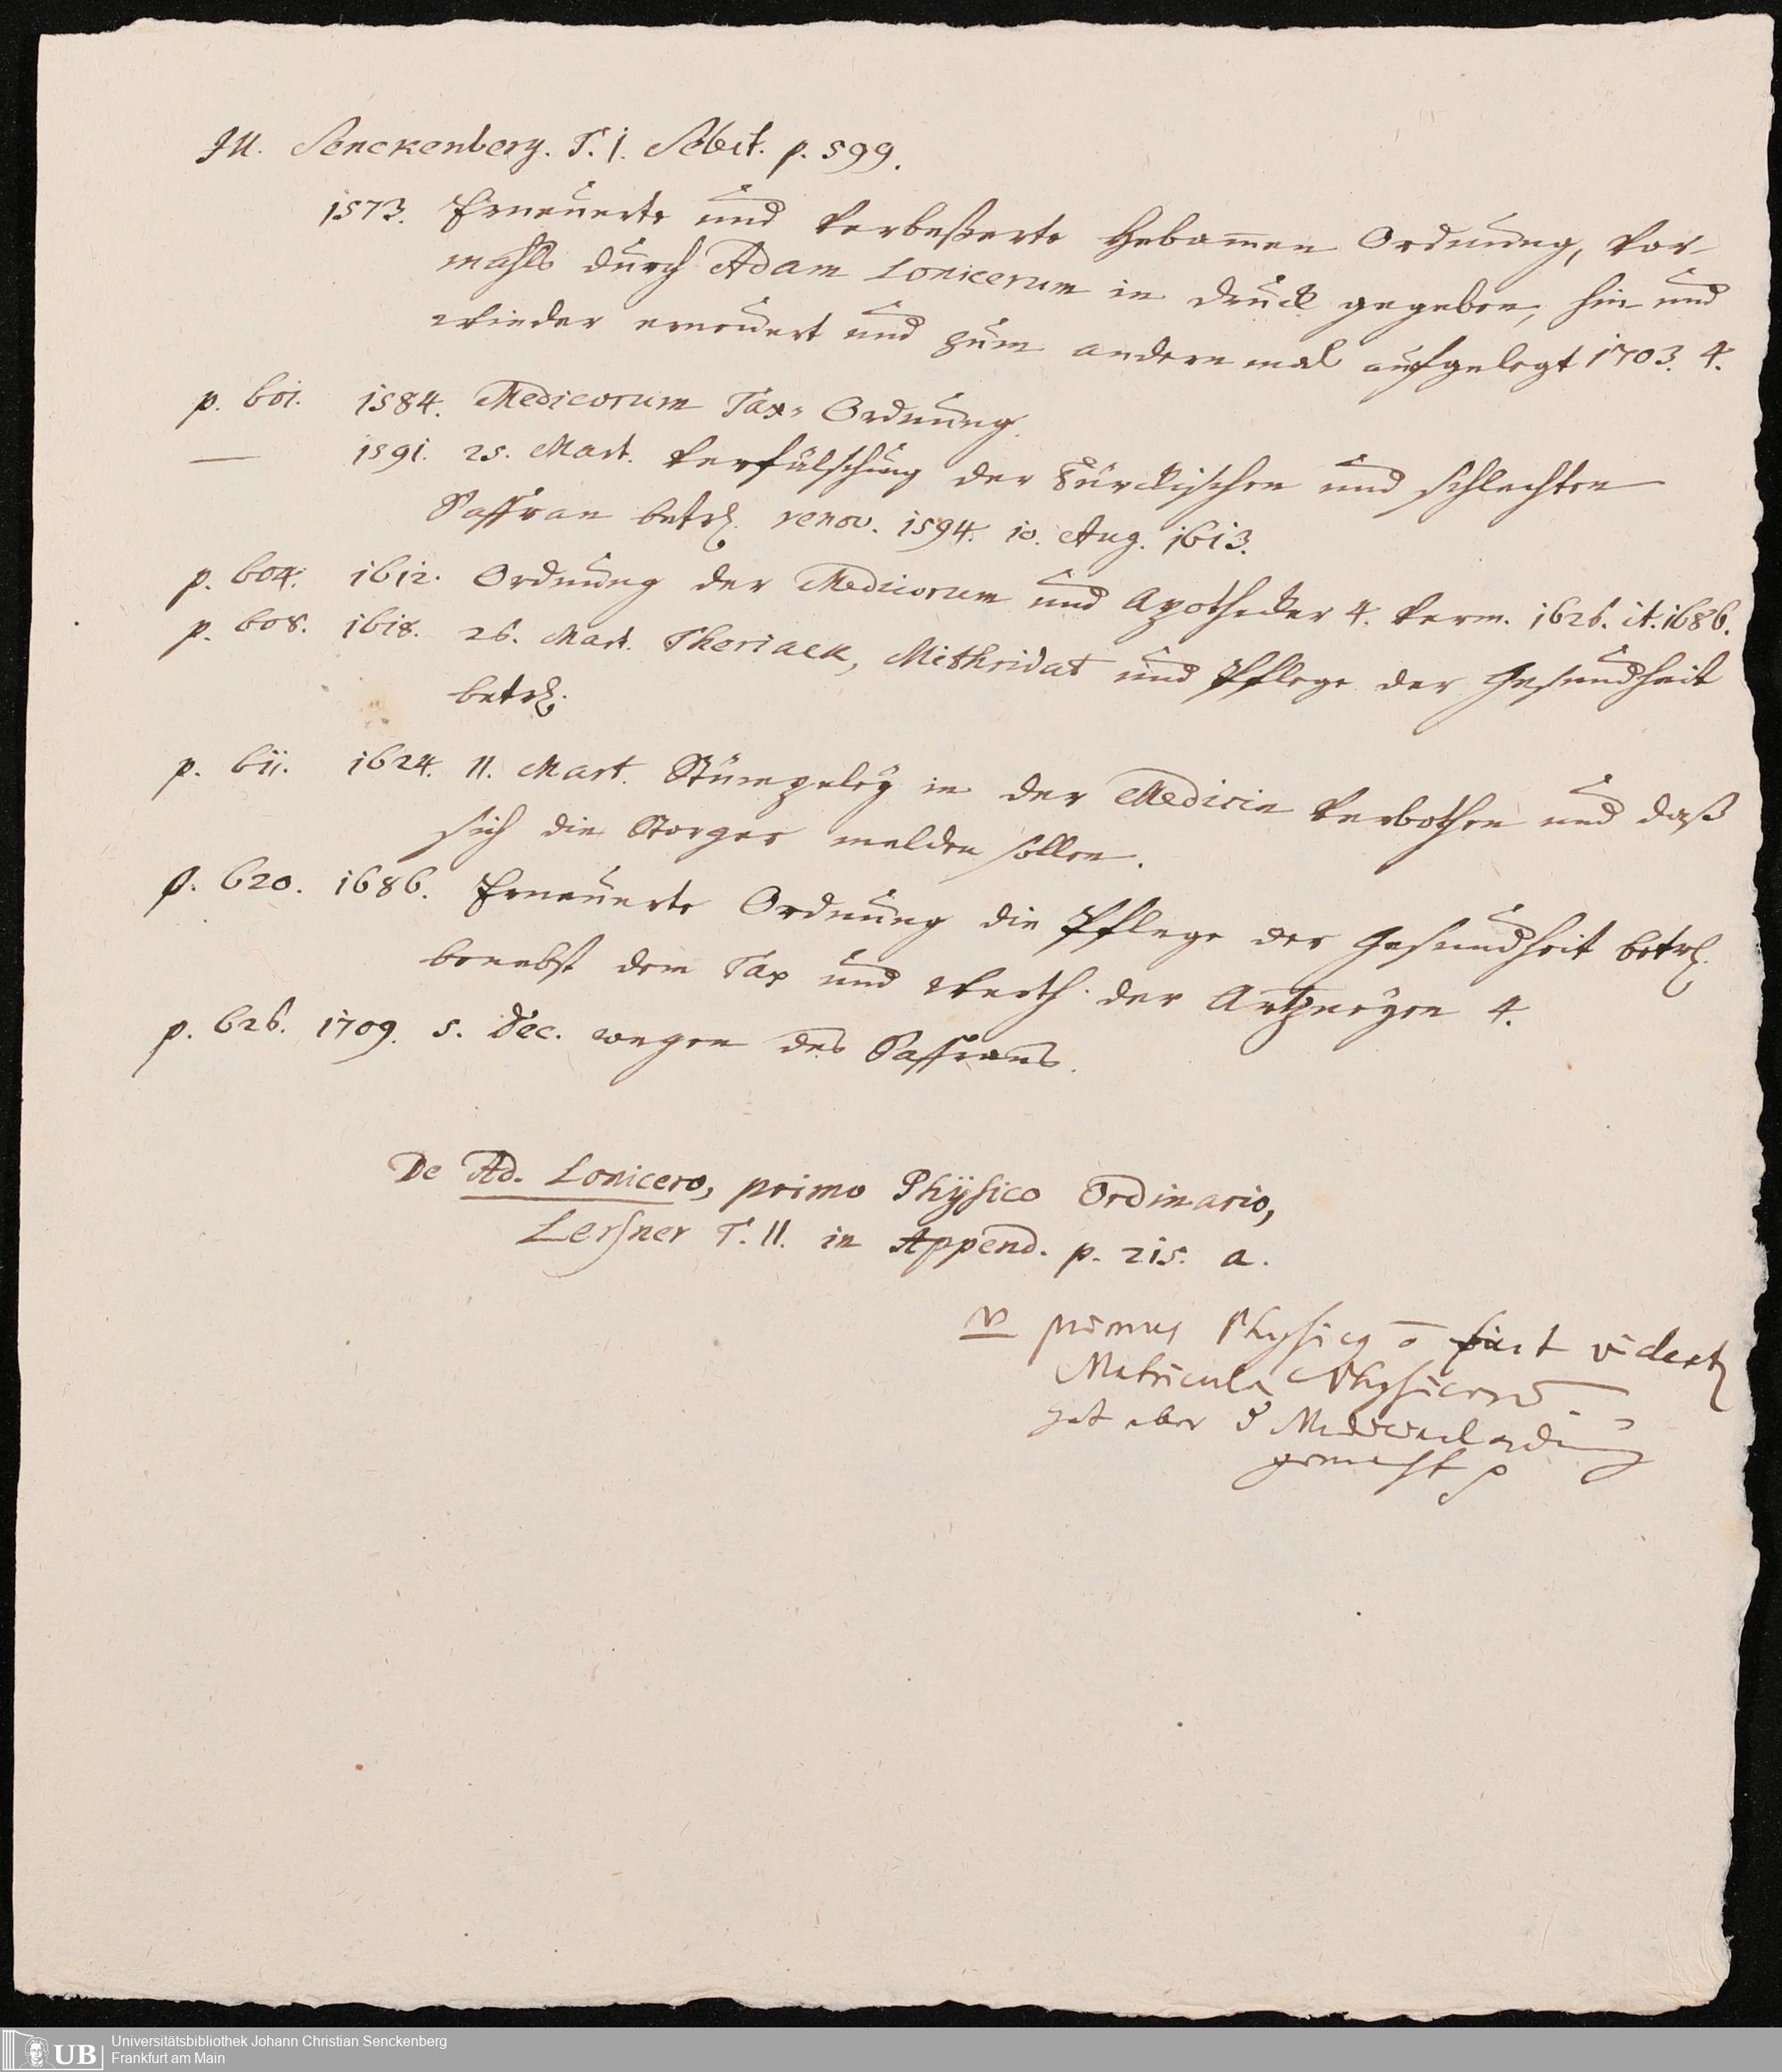 Ill. Senckenberg. T. I. Select. p. 599.
1573. Erneuerte und verbeßerte Hebam̄en Ordnung, vor-
mahls durch Adam Lonicerum in druck gegeben, hin und
wieder erneuert und zum andern mal aufgelegt 1703. 4.
p. 601. 1584. Medicorum Tax-Ordnung.
— 1591. 25. Mart. Verfälschung der Türckischen und schlechten
Saffran betrl. renov. 1594. 10. Aug. 1613.
p. 604. 1612. Ordnung der Medicorum und Apothecker 4. verm. 1626. it. 1686.
p. 608. 1618. 26. Mart. Theriack, Mithridat und Pflege der Gesundheit
betrl.
p. 611. 1624. 11. Mart. Stümpeleÿ in der Medicin verbothen und daß
sich die Storger melden sollen.
p. 620. 1686. Erneuerte Ordnung die Pflege der Gesundheit betrl.
benebst dem Tax und Werth der Artzneÿen 4.
p. 626. 1709. 5. Dec. wegen des Saffrans.
De Ad. Lonicero, primo Phÿsico Ordinario,
Lersner T. II. in Append. p. 215. a.
primus Physicq fuit
Matricula Physicorū
hat aber d Medicinalordnung
gemacht
Universitätsbibliothek Johann Christian Senckenberg
Frankfurt am Main
UB